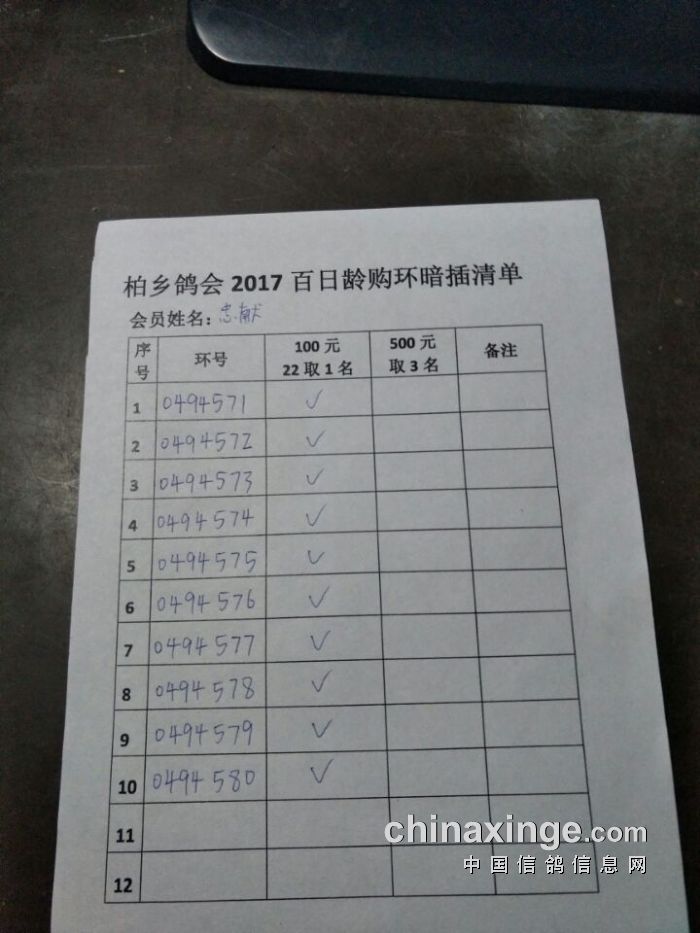 柏乡鸽会 2017 百日龄购环暗插清单
会员姓名：志献
序号 环号 100 元 22 取 1 名 500 元 取 3 名 备注
1 0494571 ✓
2 0494572 ✓
3 0494573 ✓
4 0494574 ✓
5 0494575 ✓
6 0494576 ✓
7 0494577 ✓
8 0494578 ✓
9 0494579 ✓
10 0494580 ✓
11
12
chinaxinge.com
中国信鸽信息网